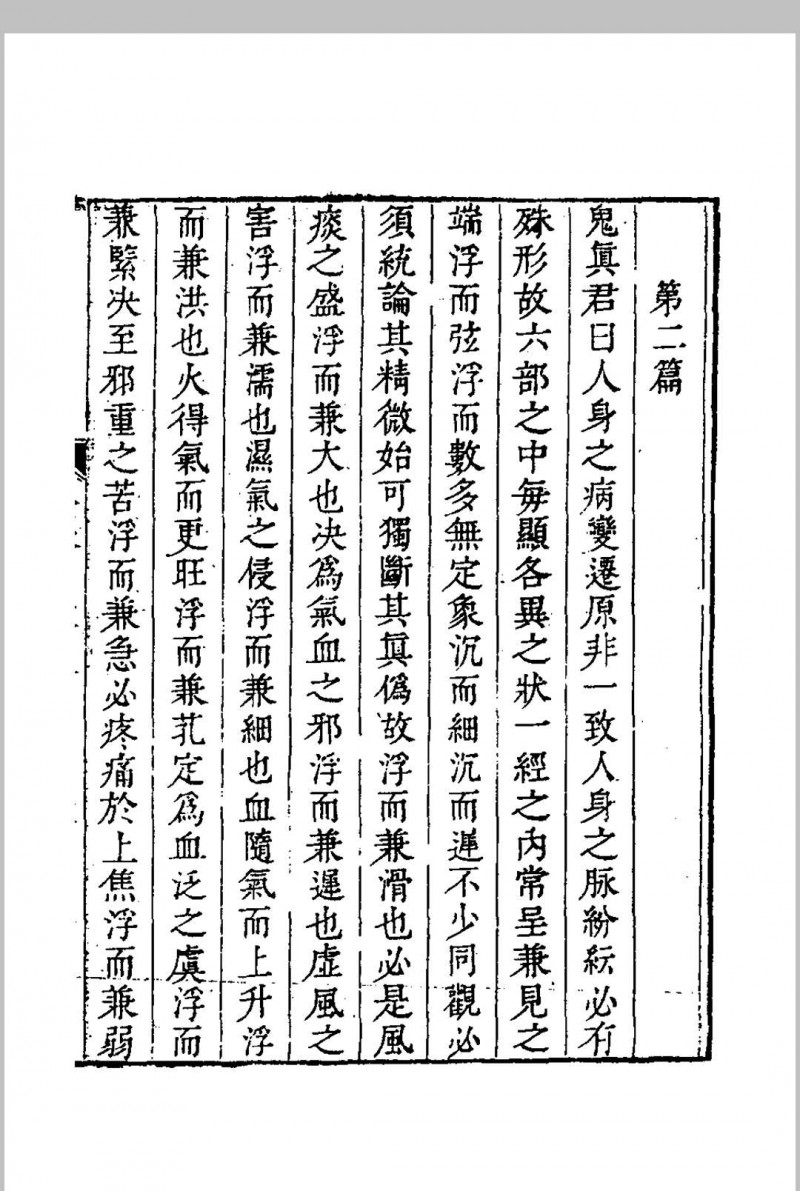 第二篇
鬼眞君曰人身之病變遷原非一致人身之脉紛紜必有
殊形故六部之中每顯各異之狀一經之內常呈兼見之
端浮而弦浮而數多無定象沉而細沉而遲不少同觀必
須統論其精微始可獨斷其眞僞故浮而兼滑也必是風
痰之盛浮而兼大也决爲氣血之邪浮而兼遲也虛風之
害浮而兼濡也濕氣之侵浮而兼細也血隨氣而上升浮
而兼洪也火得氣而更旺浮而兼芤定爲血泛之虞浮而
兼緊决至邪重之苦浮而兼急必疼痛於上焦浮而兼弱